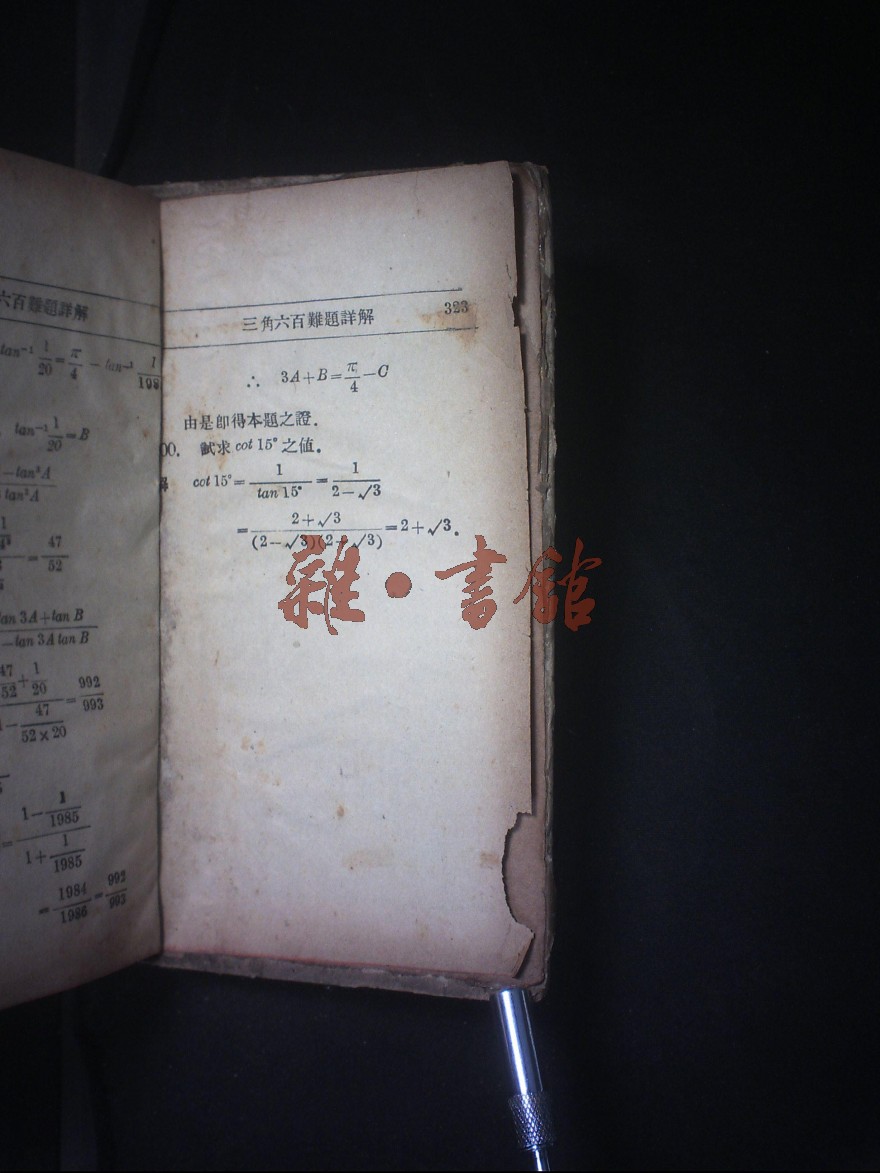 六百難題詳解
tan⁻¹ 1/20 = π/4 − tan⁻¹ 1/198
tan⁻¹ 1/20 = B
−tan³A
tan²A
= 47/52
tan 3A + tan B
− tan 3A tan B
47/52 + 1/20
= 992/993
− 47/(52×20)
1 − 1/1985
=
1 + 1/1985
= 1984/1986 = 992/993
三角六百難題詳解 323
∴ 3A + B = π/4 − C
由是即得本題之證.
00. 試求 cot 15° 之值.
cot 15° = 1/(tan 15°) = 1/(2 − √3)
= (2 + √3)/((2 − √3)(2 + √3)) = 2 + √3.
雜·書館